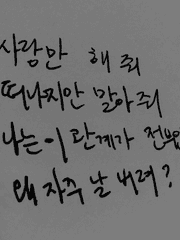 사랑만 해줘
떠나지만 말아줘
나는 이 관계가 전부
왜 자주 날 버려?